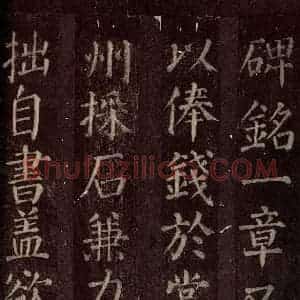 碑銘一章
以俸錢於當
州採石兼力
拙自書蓋欲
Khufazilica.com